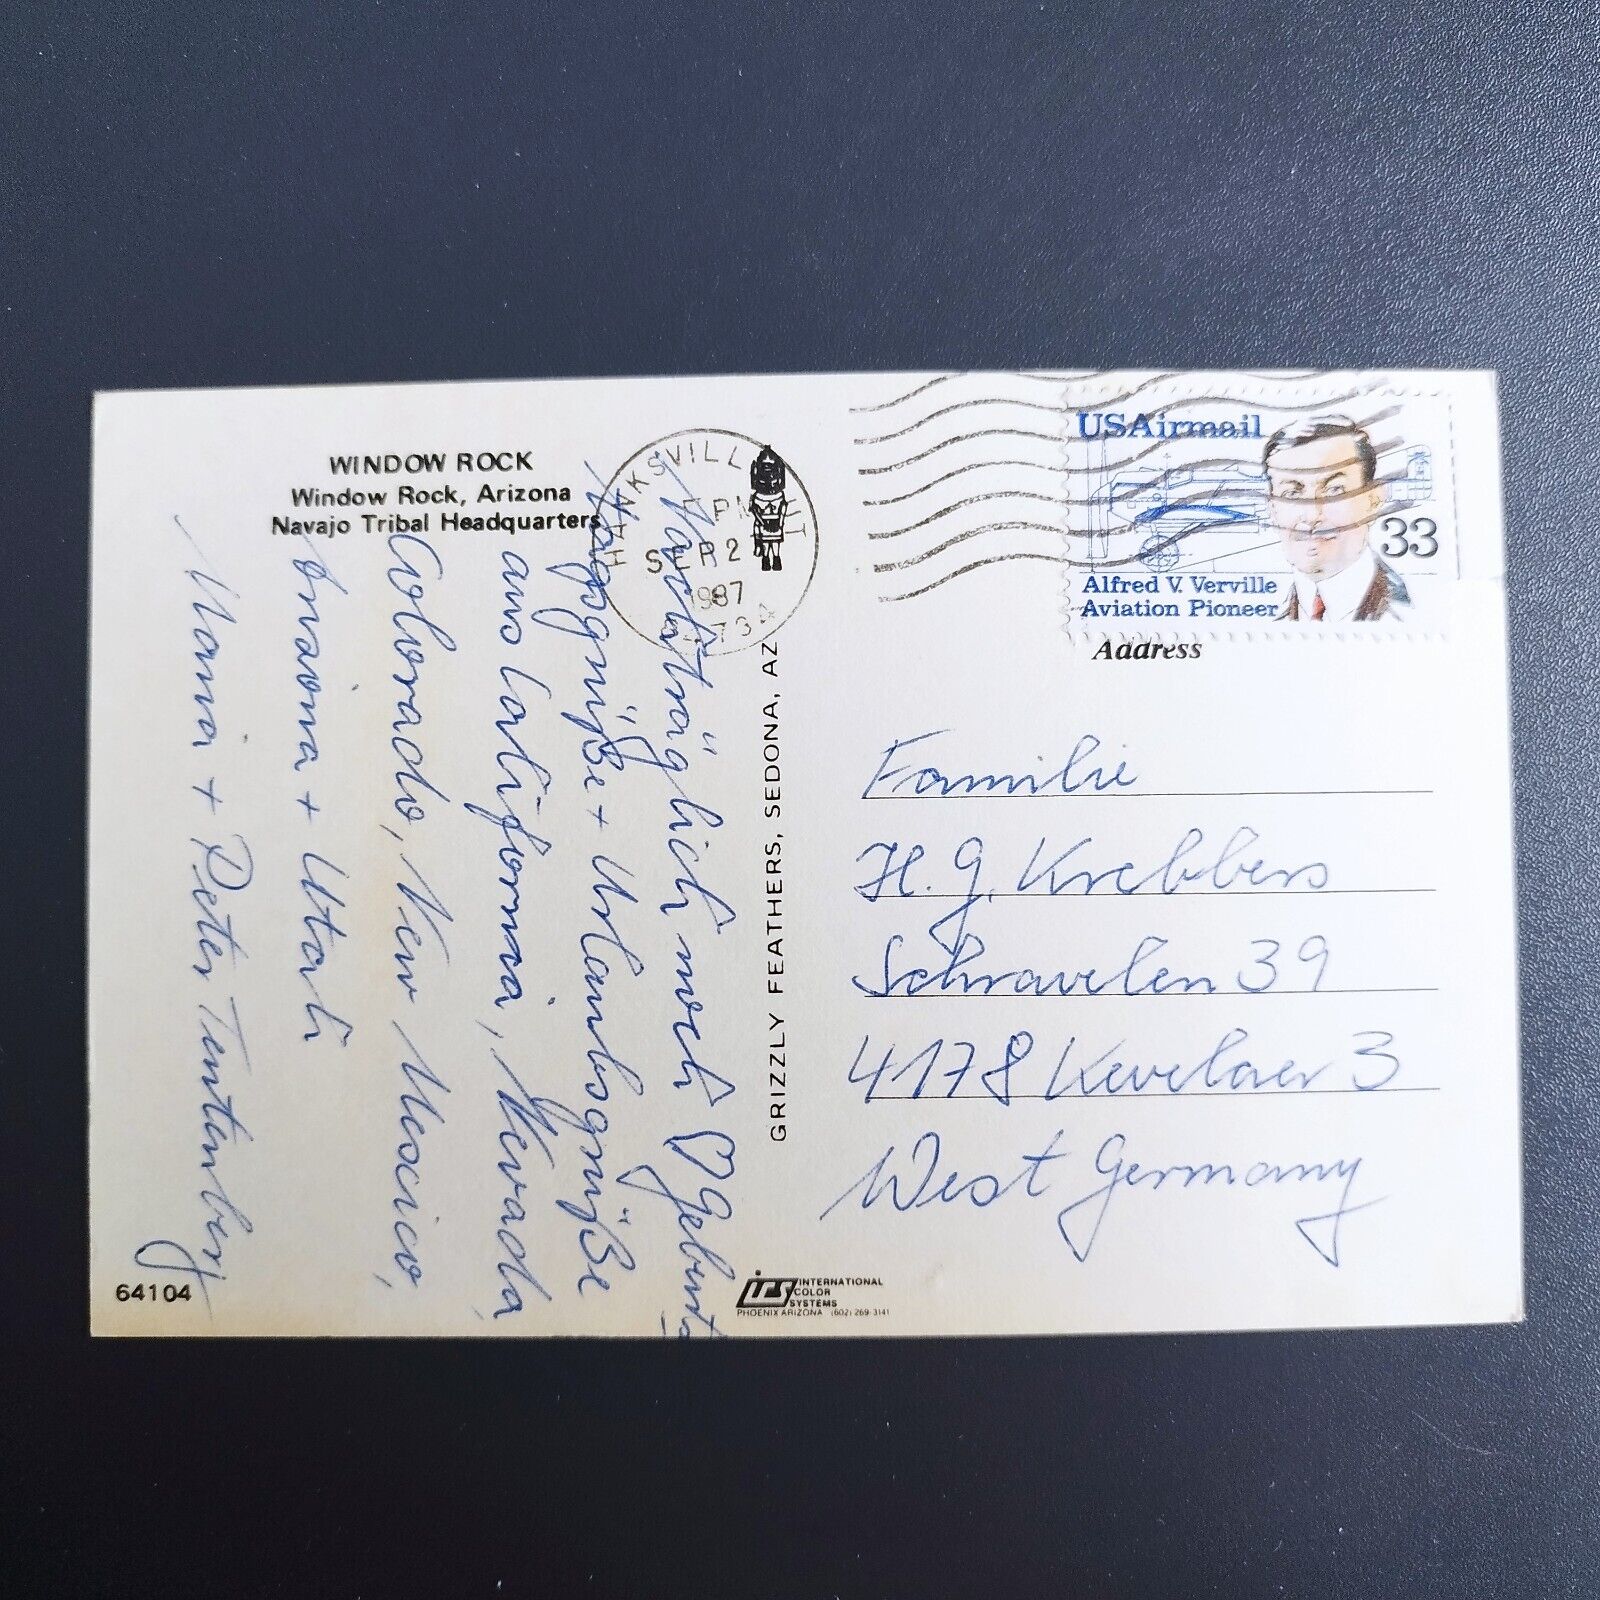 WINDOW ROCK
Window Rock, Arizona
Navajo Tribal Headquarters
Nachträglich noch ♡ Geburts
taggrüße + Urlaubsgrüße
aus California, Nevada,
Colorado, New Mexico,
Arizona + Utah
Maria + Peter Tentenberg
64104
GRIZZLY FEATHERS, SEDONA, AZ
HANKSVILLE UT
PM
SEP 2
1987
84734
USAirmail
33
Alfred V. Verville
Aviation Pioneer
Address
Familie
H. G. Krebbers
Schravelen 39
4178 Kevelaer 3
West Germany
ics INTERNATIONAL
COLOR
SYSTEMS
PHOENIX ARIZONA (602) 269-3141